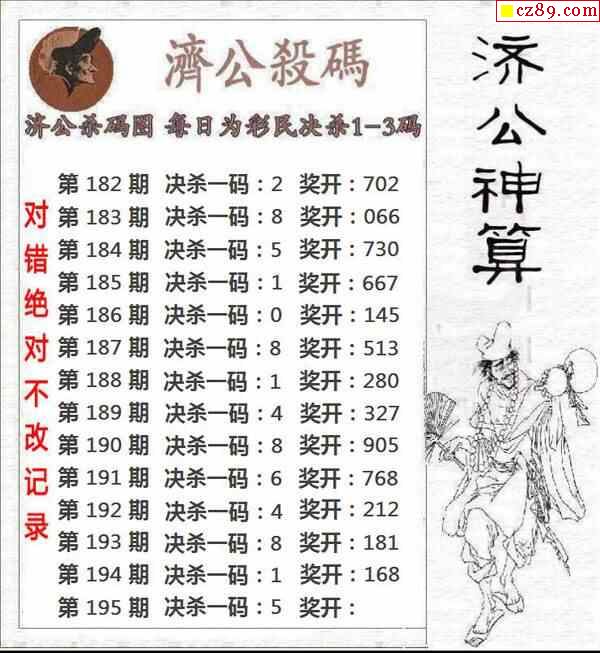 cz89.com
濟公殺碼
济公杀码图 每日为彩民决杀1-3码
第 182 期 决杀一码：2 奖开：702
第 183 期 决杀一码：8 奖开：066
第 184 期 决杀一码：5 奖开：730
第 185 期 决杀一码：1 奖开：667
第 186 期 决杀一码：0 奖开：145
第 187 期 决杀一码：8 奖开：513
第 188 期 决杀一码：1 奖开：280
第 189 期 决杀一码：4 奖开：327
第 190 期 决杀一码：8 奖开：905
第 191 期 决杀一码：6 奖开：768
第 192 期 决杀一码：4 奖开：212
第 193 期 决杀一码：8 奖开：181
第 194 期 决杀一码：1 奖开：168
第 195 期 决杀一码：5 奖开：
对错绝对不改记录
济公神算